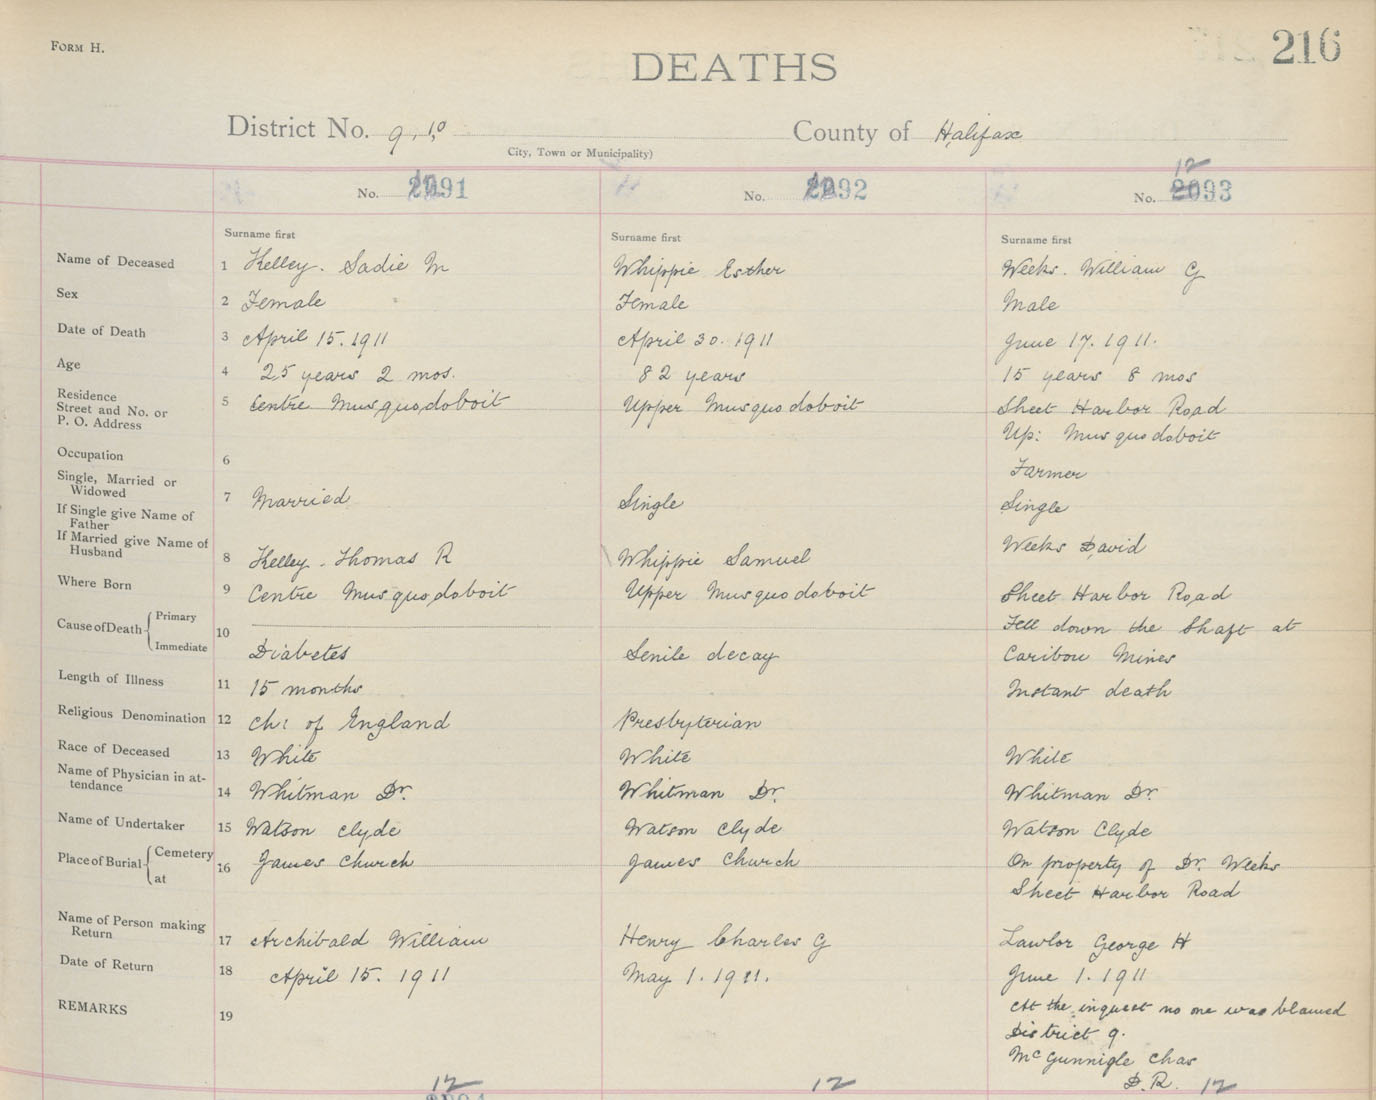 FORM H.
216
DEATHS
District No. 9, 10
County of Halifax
City, Town or Municipality)
No. 2091
No. 2092
12
No. 2093
Surname first
Surname first
Surname first
Name of Deceased 1 Kelley. Sadie M Whippie Esther Weeks. William G
Sex 2 Female Female Male
Date of Death 3 April 15. 1911 April 30. 1911 June 17. 1911.
Age 4 25 years 2 mos. 82 years 15 years 8 mos
Residence
Street and No. or 5 Centre Musquodoboit Upper Musquodoboit Sheet Harbor Road
P. O. Address Up: Musquodoboit
Occupation 6 Farmer
Single, Married or
Widowed 7 Married Single Single
If Single give Name of
Father
If Married give Name of Weeks David
Husband 8 Kelley. Thomas R Whippie Samuel
Where Born 9 Centre Musquodoboit Upper Musquodoboit Sheet Harbor Road
Cause of Death Primary 10 Fell down the Shaft at
Immediate Diabetes Senile decay Caribou Mines
Length of Illness 11 15 months Instant death
Religious Denomination 12 Ch: of England Presbyterian
Race of Deceased 13 White White White
Name of Physician in at-
tendance 14 Whitman Dr. Whitman Dr. Whitman Dr.
Name of Undertaker 15 Watson Clyde Watson Clyde Watson Clyde
Place of Burial Cemetery 16 James Church James Church On property of Dr. Weeks
at Sheet Harbor Road
Name of Person making
Return 17 Archibald William Henry Charles G Lawlor George H
Date of Return 18 April 15. 1911 May 1. 1911. June 1. 1911
REMARKS 19 At the inquest no one was blamed
District 9.
McGunnigle Chas
D.R. 12
12 12